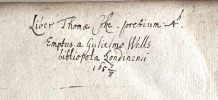 Liber Thomæ Coke - pretium 4s.
Emptus a Gulielmo Wells
bibliopola Londinensi
167 7/8